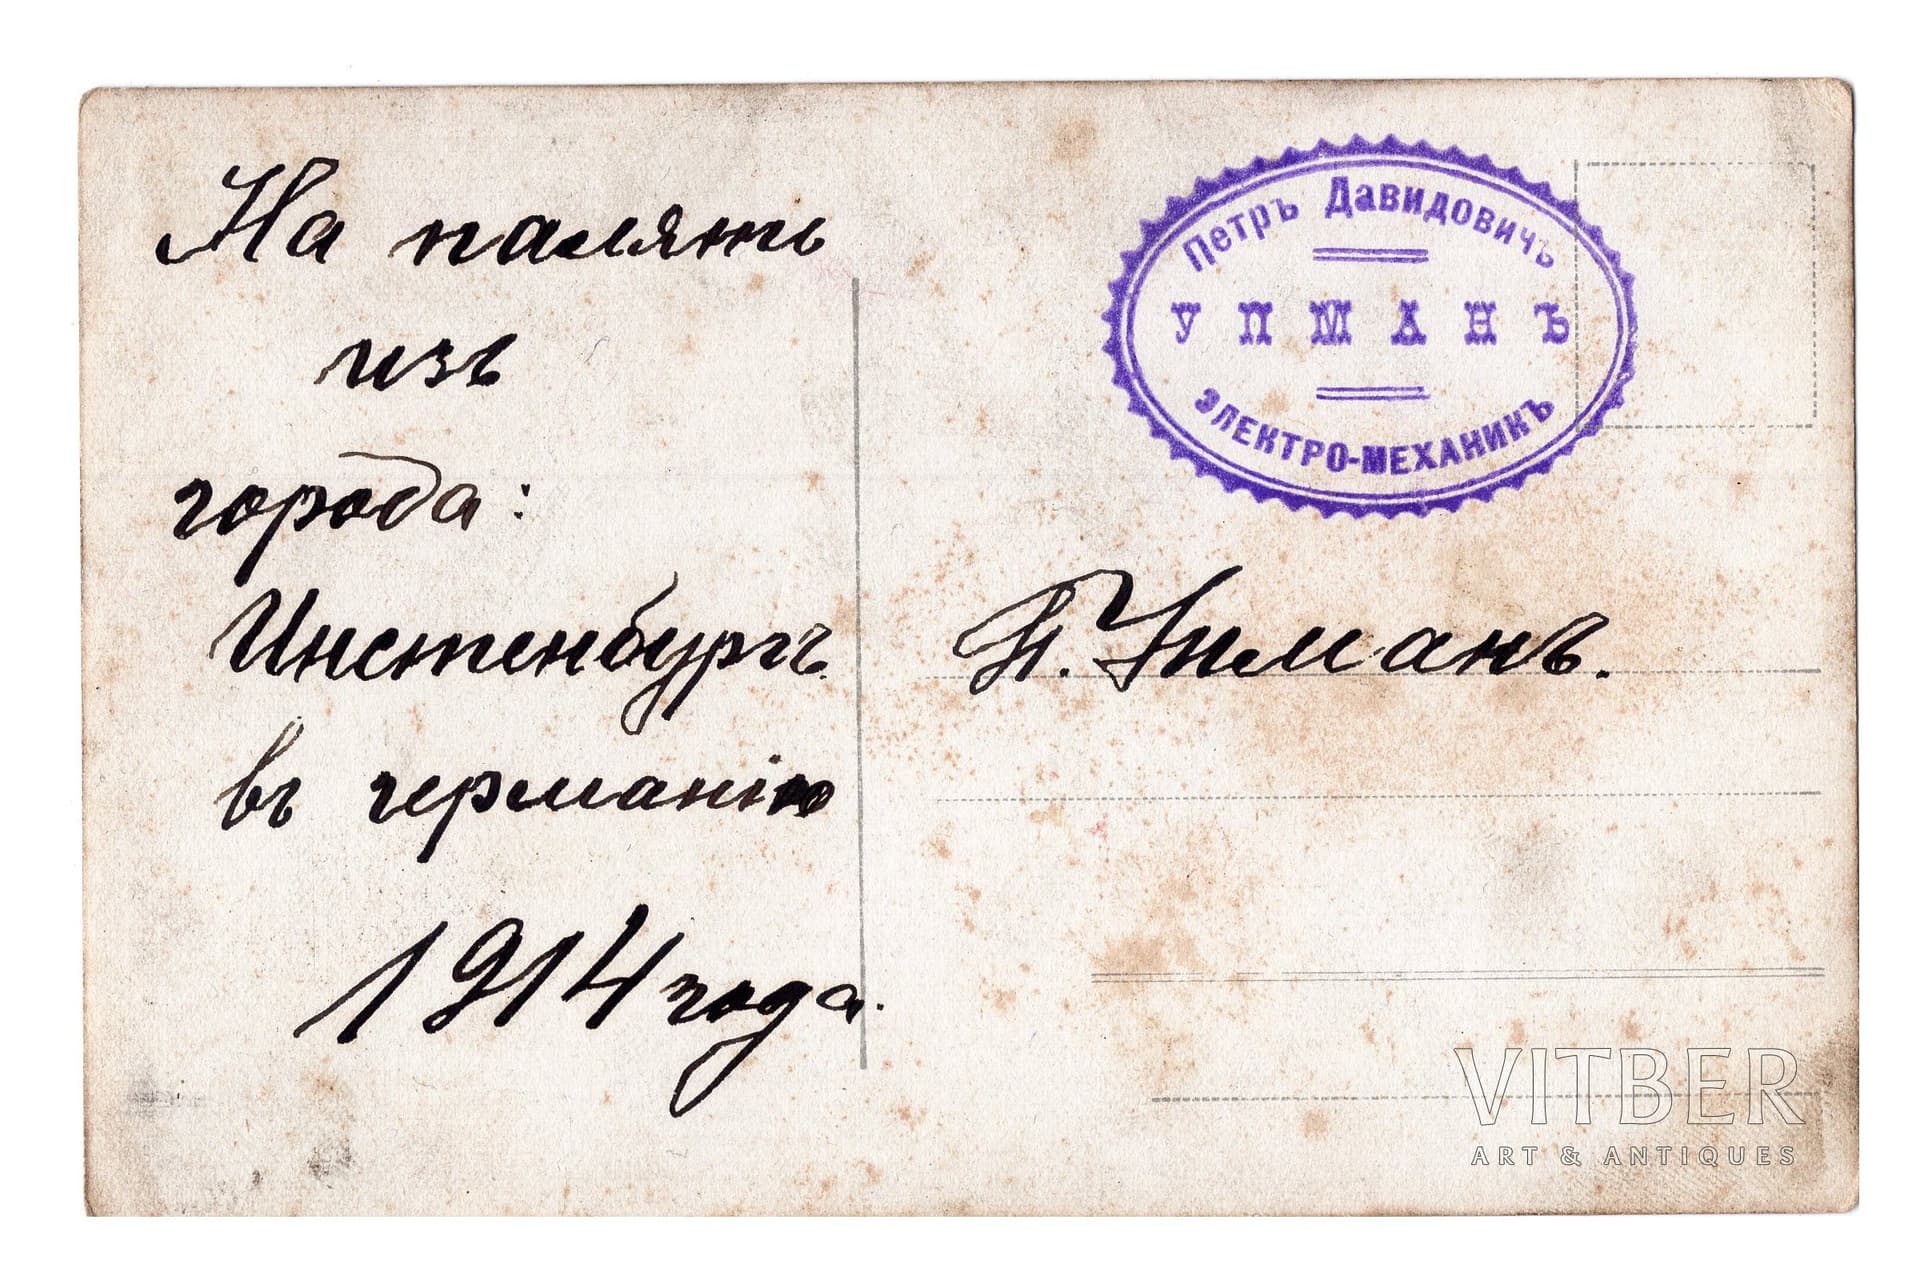 На память
изъ
города:
Инстенбургъ.
въ германію
1914 года.
Петръ Давидовичъ
УПМАНЪ
ЭЛЕКТРО-МЕХАНИКЪ
П. Упманъ.
VITBER
ART & ANTIQUES